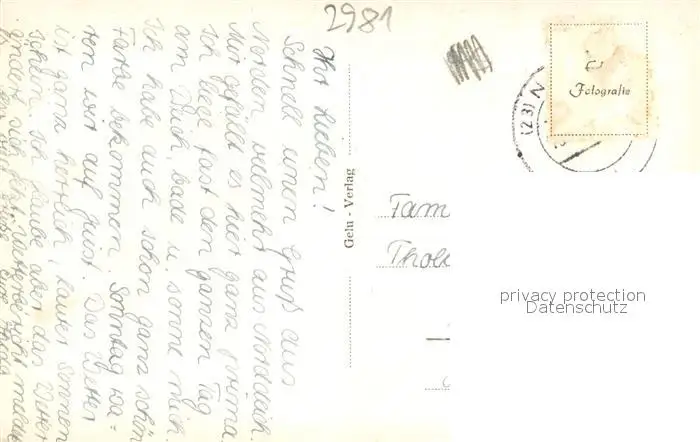 2981
Ihr Lieben!
Schnell einen Gruß aus
Norden vielmehr aus Norddeich.
Mir gefällt es hier ganz prima.
Ich liege fast den ganzen Tag
am Deich, bade u. sonne mich.
Ich habe auch schon ganz schön
Farbe bekommen. Sonntag wa=
ren wir auf Juist. Das Wetter
ist ganz herrlich, lauter Sonnen
schein. Ich glaube aber das Wetter
ändert sich
Gelu - Verlag
Fotografie
(23) N
Fam
Thole
privacy protection
Datenschutz